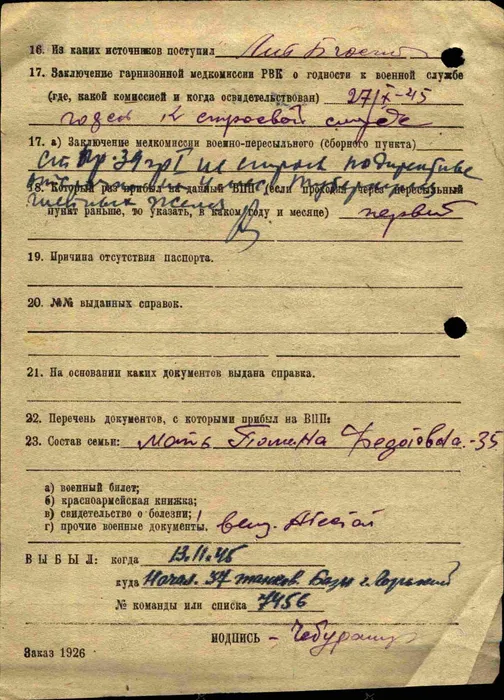 16. Из каких источников поступил
17. Заключение гарнизонной медкомиссии РВК о годности к военной службе
(где, какой комиссией и когда освидетельствован) 27/X-45
годен к строевой службе
17. а) Заключение медкомиссии военно-пересыльного (сборного пункта)
ст гр I не строев
18. Который раз прибыл на данный ВПП (если проходил через пересыльный
пункт раньше, то указать, в каком году и месяце) первый
19. Причина отсутствия паспорта.
20. №№ выданных справок.
21. На основании каких документов выдана справка.
22. Перечень документов, с которыми прибыл на ВПП:
23. Состав семьи: мать Федотовна -35
а) военный билет;
б) красноармейская книжка;
в) свидетельство о болезни;
г) прочие военные документы. вещ. Атестат
ВЫБЫЛ: когда 13.11.45
куда Начал. 37 танков. Базы г. Горький
№ команды или списка 7456
ПОДПИСЬ -
Заказ 1926